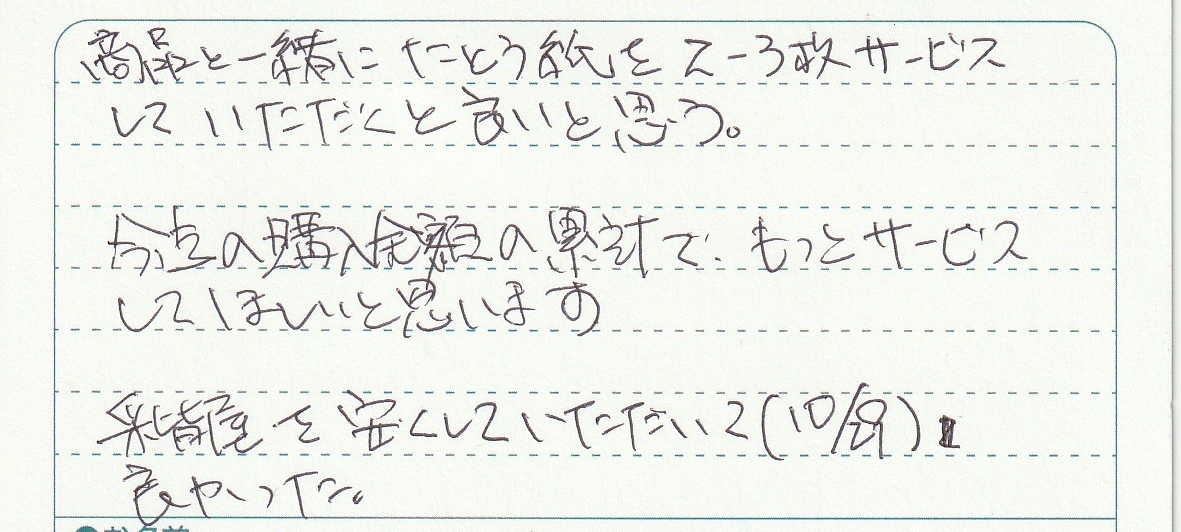 商品と一緒に たとう紙を 2-3枚サービス
していただくと良いと思う。
の購入金額の累計で、もっとサービス
してほしいと思います
を安くしていただいて(10/29)
良かった。